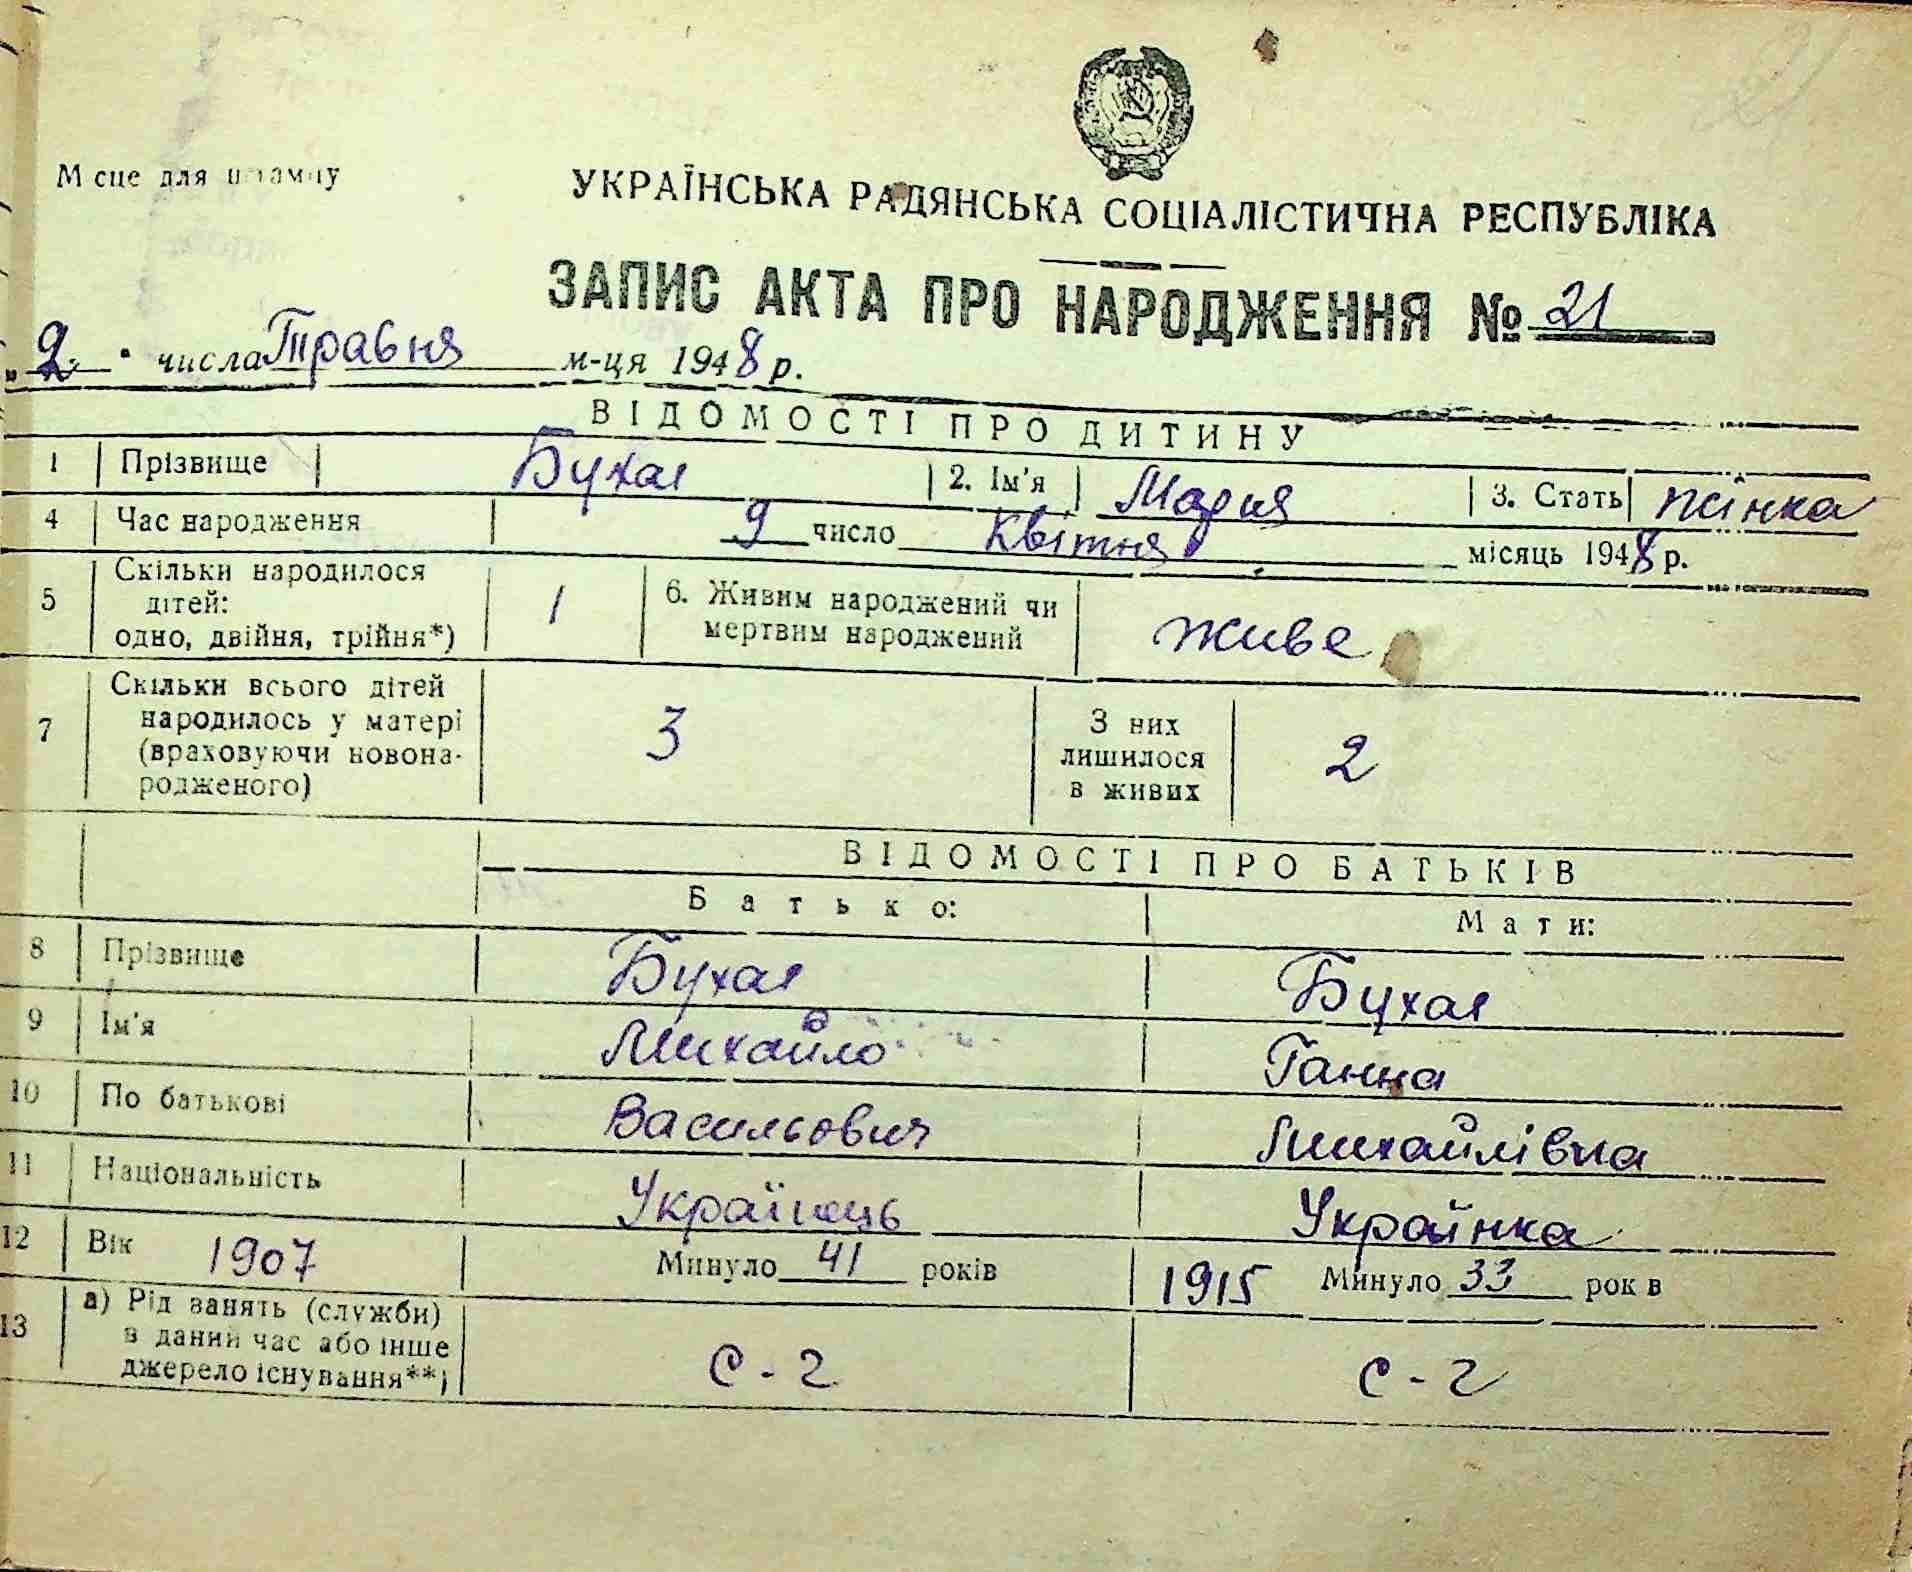 Місце для штампу
УКРАЇНСЬКА РАДЯНСЬКА СОЦІАЛІСТИЧНА РЕСПУБЛІКА
ЗАПИС АКТА ПРО НАРОДЖЕННЯ № 21
„ 2 " числа Травня м-ця 1948 р.
ВІДОМОСТІ ПРО ДИТИНУ
1 Прізвище Бухал 2. Ім'я Мария 3. Стать жінка
4 Час народження 9 число Квітня місяць 1948 р.
5 Скільки народилося
дітей:
одно, двійня, трійня*) 1 6. Живим народжений чи
мертвим народжений живе
7 Скільки всього дітей
народилось у матері
(враховуючи новона-
родженого) 3 З них
лишилося
в живих 2
ВІДОМОСТІ ПРО БАТЬКІВ
Батько: Мати:
8 Прізвище Бухал Бухал
9 Ім'я Михайло Ганна
10 По батькові Васильович Михайлівна
11 Національність Українець Українка
12 Вік 1907 Минуло 41 років 1915 Минуло 33 рок в
13 а) Рід занять (служби)
в даний час або інше
джерело існування**) с-г с-г